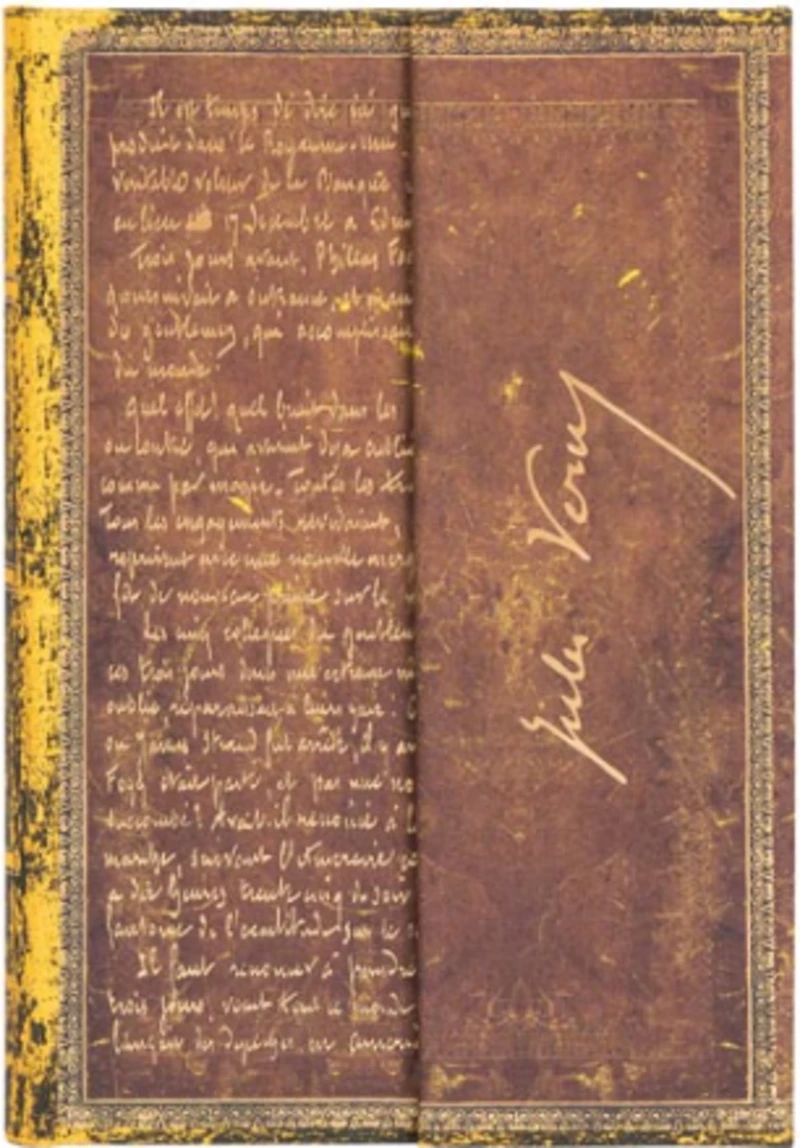 Il est temps de dire ici qu
produit dans le Royaume-Uni
véritable voleur de la Banque
eu lieu 17 Décembre à Edim
Trois jours avant, Philéas Fo
poursuivait à outrance, et
de gentleman, qui accomplissai
du monde!
Quel effet! quel bruit dans les
ou contre, qui avaient déjà oublié
comme par magie. Toutes les tr
Tous les engagements revivaient,
reprirent avec une nouvelle
de nouveau sur le
Les cinq collègues du gentlem
ces trois jours dans une
oublié, reparaissait à leurs yeux.
où James Strand fut arrêté, il y av
Fogg était parti, et pas une no
succombé? Avait-il renoncé à l
marche, suivant l'itinéraire
à dix heures trente cinq du soir
de l'exactitude, sur le
Il faut renoncer à peindre
trois jours, vécut tout le monde
lança des dépêches en
Jules Verne